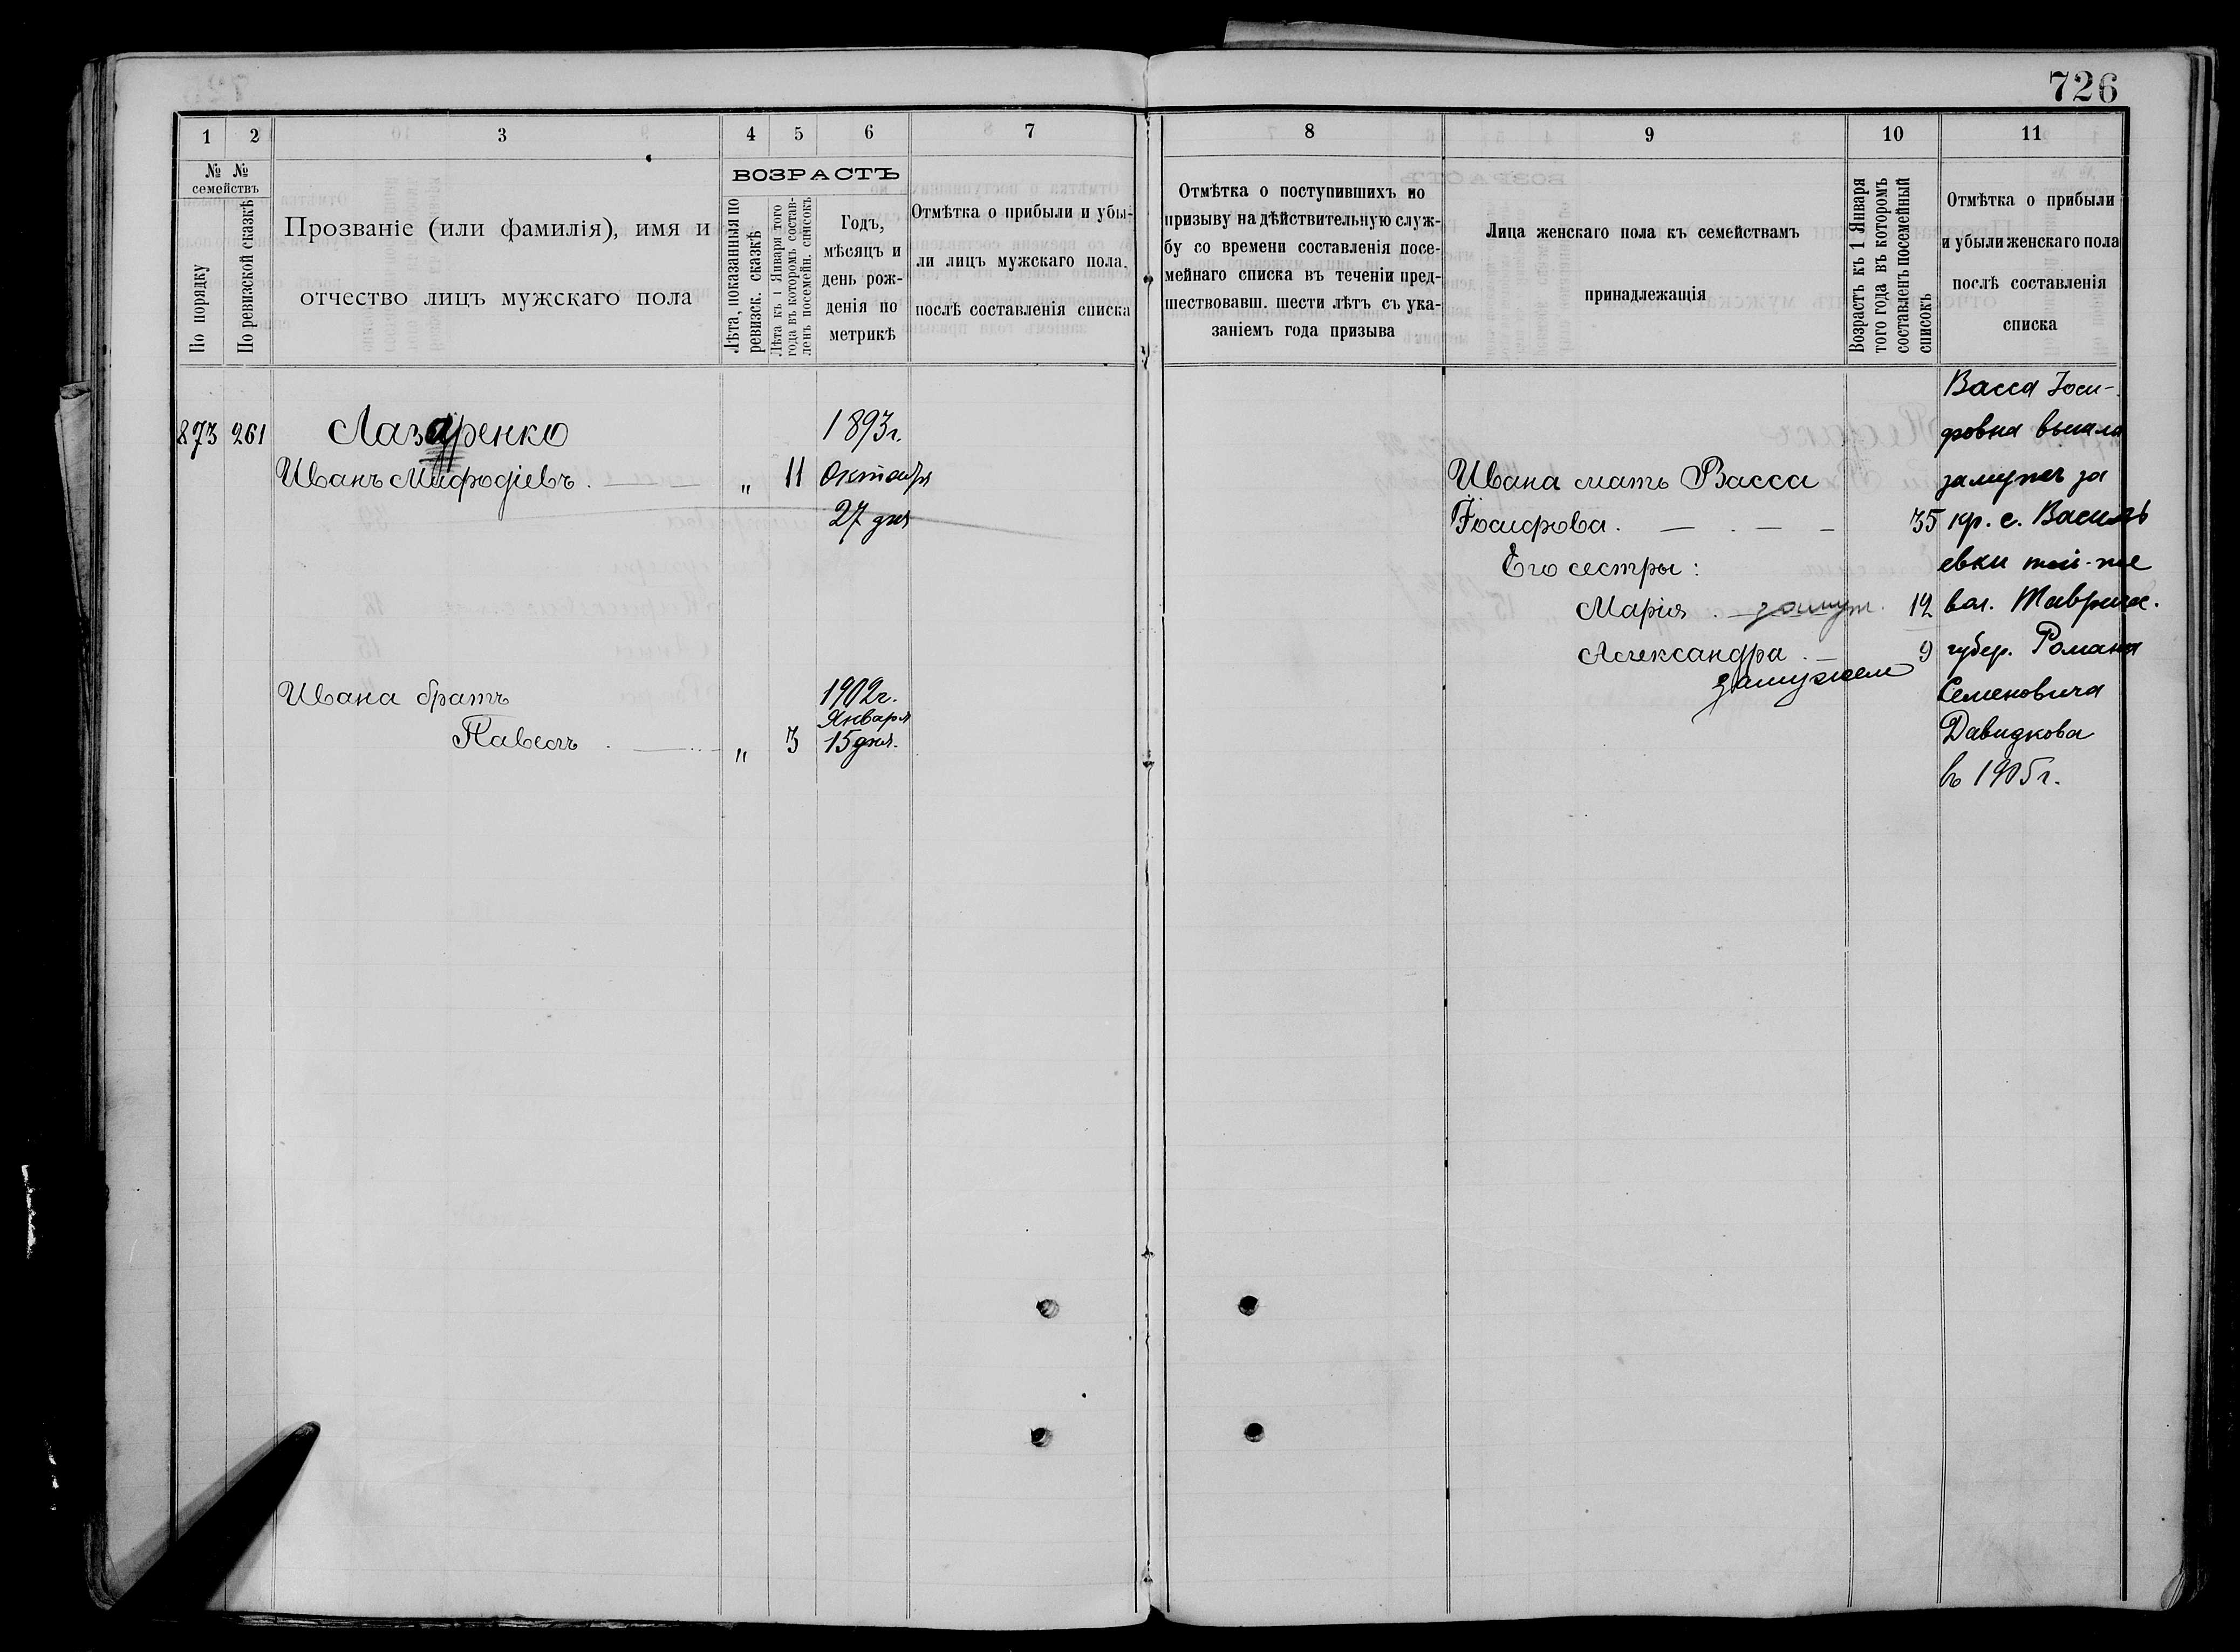 726
1 2 3 4 5 6 7
№ № семействъ
По порядку
По ревизской сказкѣ
Прозваніе (или фамилія), имя и
отчество лицъ мужскаго пола
ВОЗРАСТЪ
Лѣта, показанныя по
ревизск. сказкѣ
Лѣта къ 1 Января того
года въ которомъ состав-
ленъ посемейн. списокъ
Годъ,
мѣсяцъ и
день рож-
денія по
метрикѣ
Отмѣтка о прибыли и убы-
ли лицъ мужскаго пола,
послѣ составленія списка
873 261 Лазаренко 1893г.
Иванъ Мифодіевъ. — — „ 11 Октября
27 дня
Ивана братъ 1902г.
Января
Павелъ . — „ 3 15 дня.
8 9 10 11
Отмѣтка о поступившихъ по
призыву на дѣйствительную служ-
бу со времени составленія посе-
мейнаго списка въ теченіи пред-
шествовавш. шести лѣтъ съ ука-
заніемъ года призыва
Лица женскаго пола къ семействамъ
принадлежащія
Возрастъ къ 1 Января
того года въ которомъ
составленъ посемейный
списокъ
Отмѣтка о прибыли
и убыли женскаго пола
послѣ составленія
списка
Ивана мать Васса
Іосифова. — . — — 35
Его сестры:
Марія . — замуж. 12
Александра . — 9
замужем
Васса Іоси-
фовна вышла
замужъ за
кр. с. Василь
евки той-же
вол. Таврич.
губер. Романа
Семеновича
Давидкова
въ 1905г.